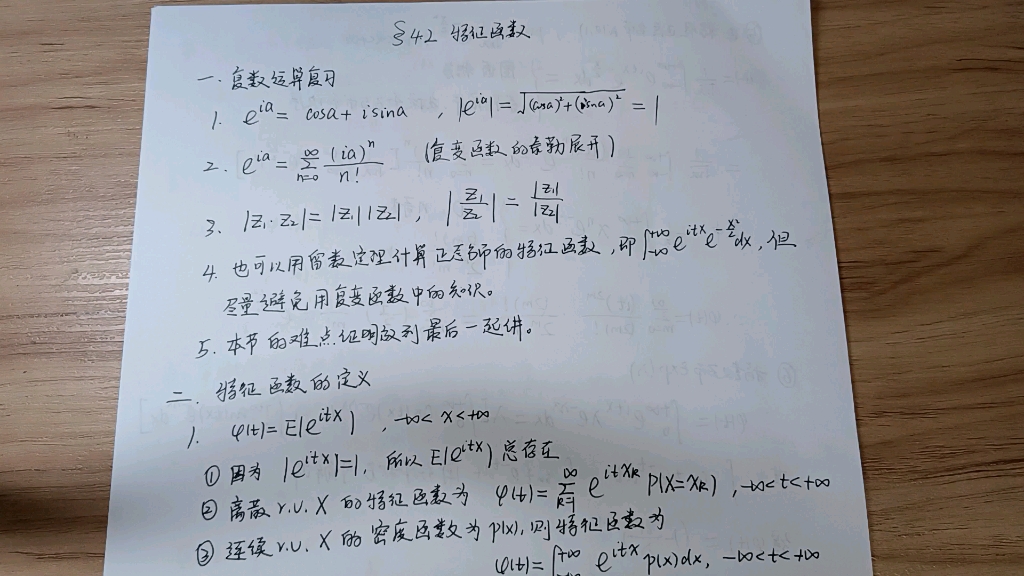 §4.2 特征函数
一. 复数运算复习
1. e^{ia} = cosa + isina , |e^{ia}| = √((cosa)²+(sina)²) = 1
2. e^{ia} = ∑_{n=0}^{∞} (ia)^n / n! (复变函数的泰勒展开)
3. |Z₁·Z₂| = |Z₁||Z₂| , |Z₁/Z₂| = |Z₁|/|Z₂|
4. 也可以用留数定理计算正态分布的特征函数,即∫_{-∞}^{+∞} e^{itx} e^{-x²/2} dx,但
尽量避免用复变函数中的知识。
5. 本节的难点证明放到最后一起讲。
二. 特征函数的定义
1. φ(t) = E(e^{itX}) , -∞ < x < +∞
① 因为 |e^{itX}| = 1, 所以 E(e^{itX}) 总存在
② 离散 r.v. X 的特征函数为 φ(t) = ∑_{k=1}^{∞} e^{itx_k} P(X=x_k) , -∞<t<+∞
③ 连续 r.v. X 的密度函数为 p(x), 则特征函数为
φ(t) = ∫_{-∞}^{+∞} e^{itx} p(x)dx, -∞<t<+∞